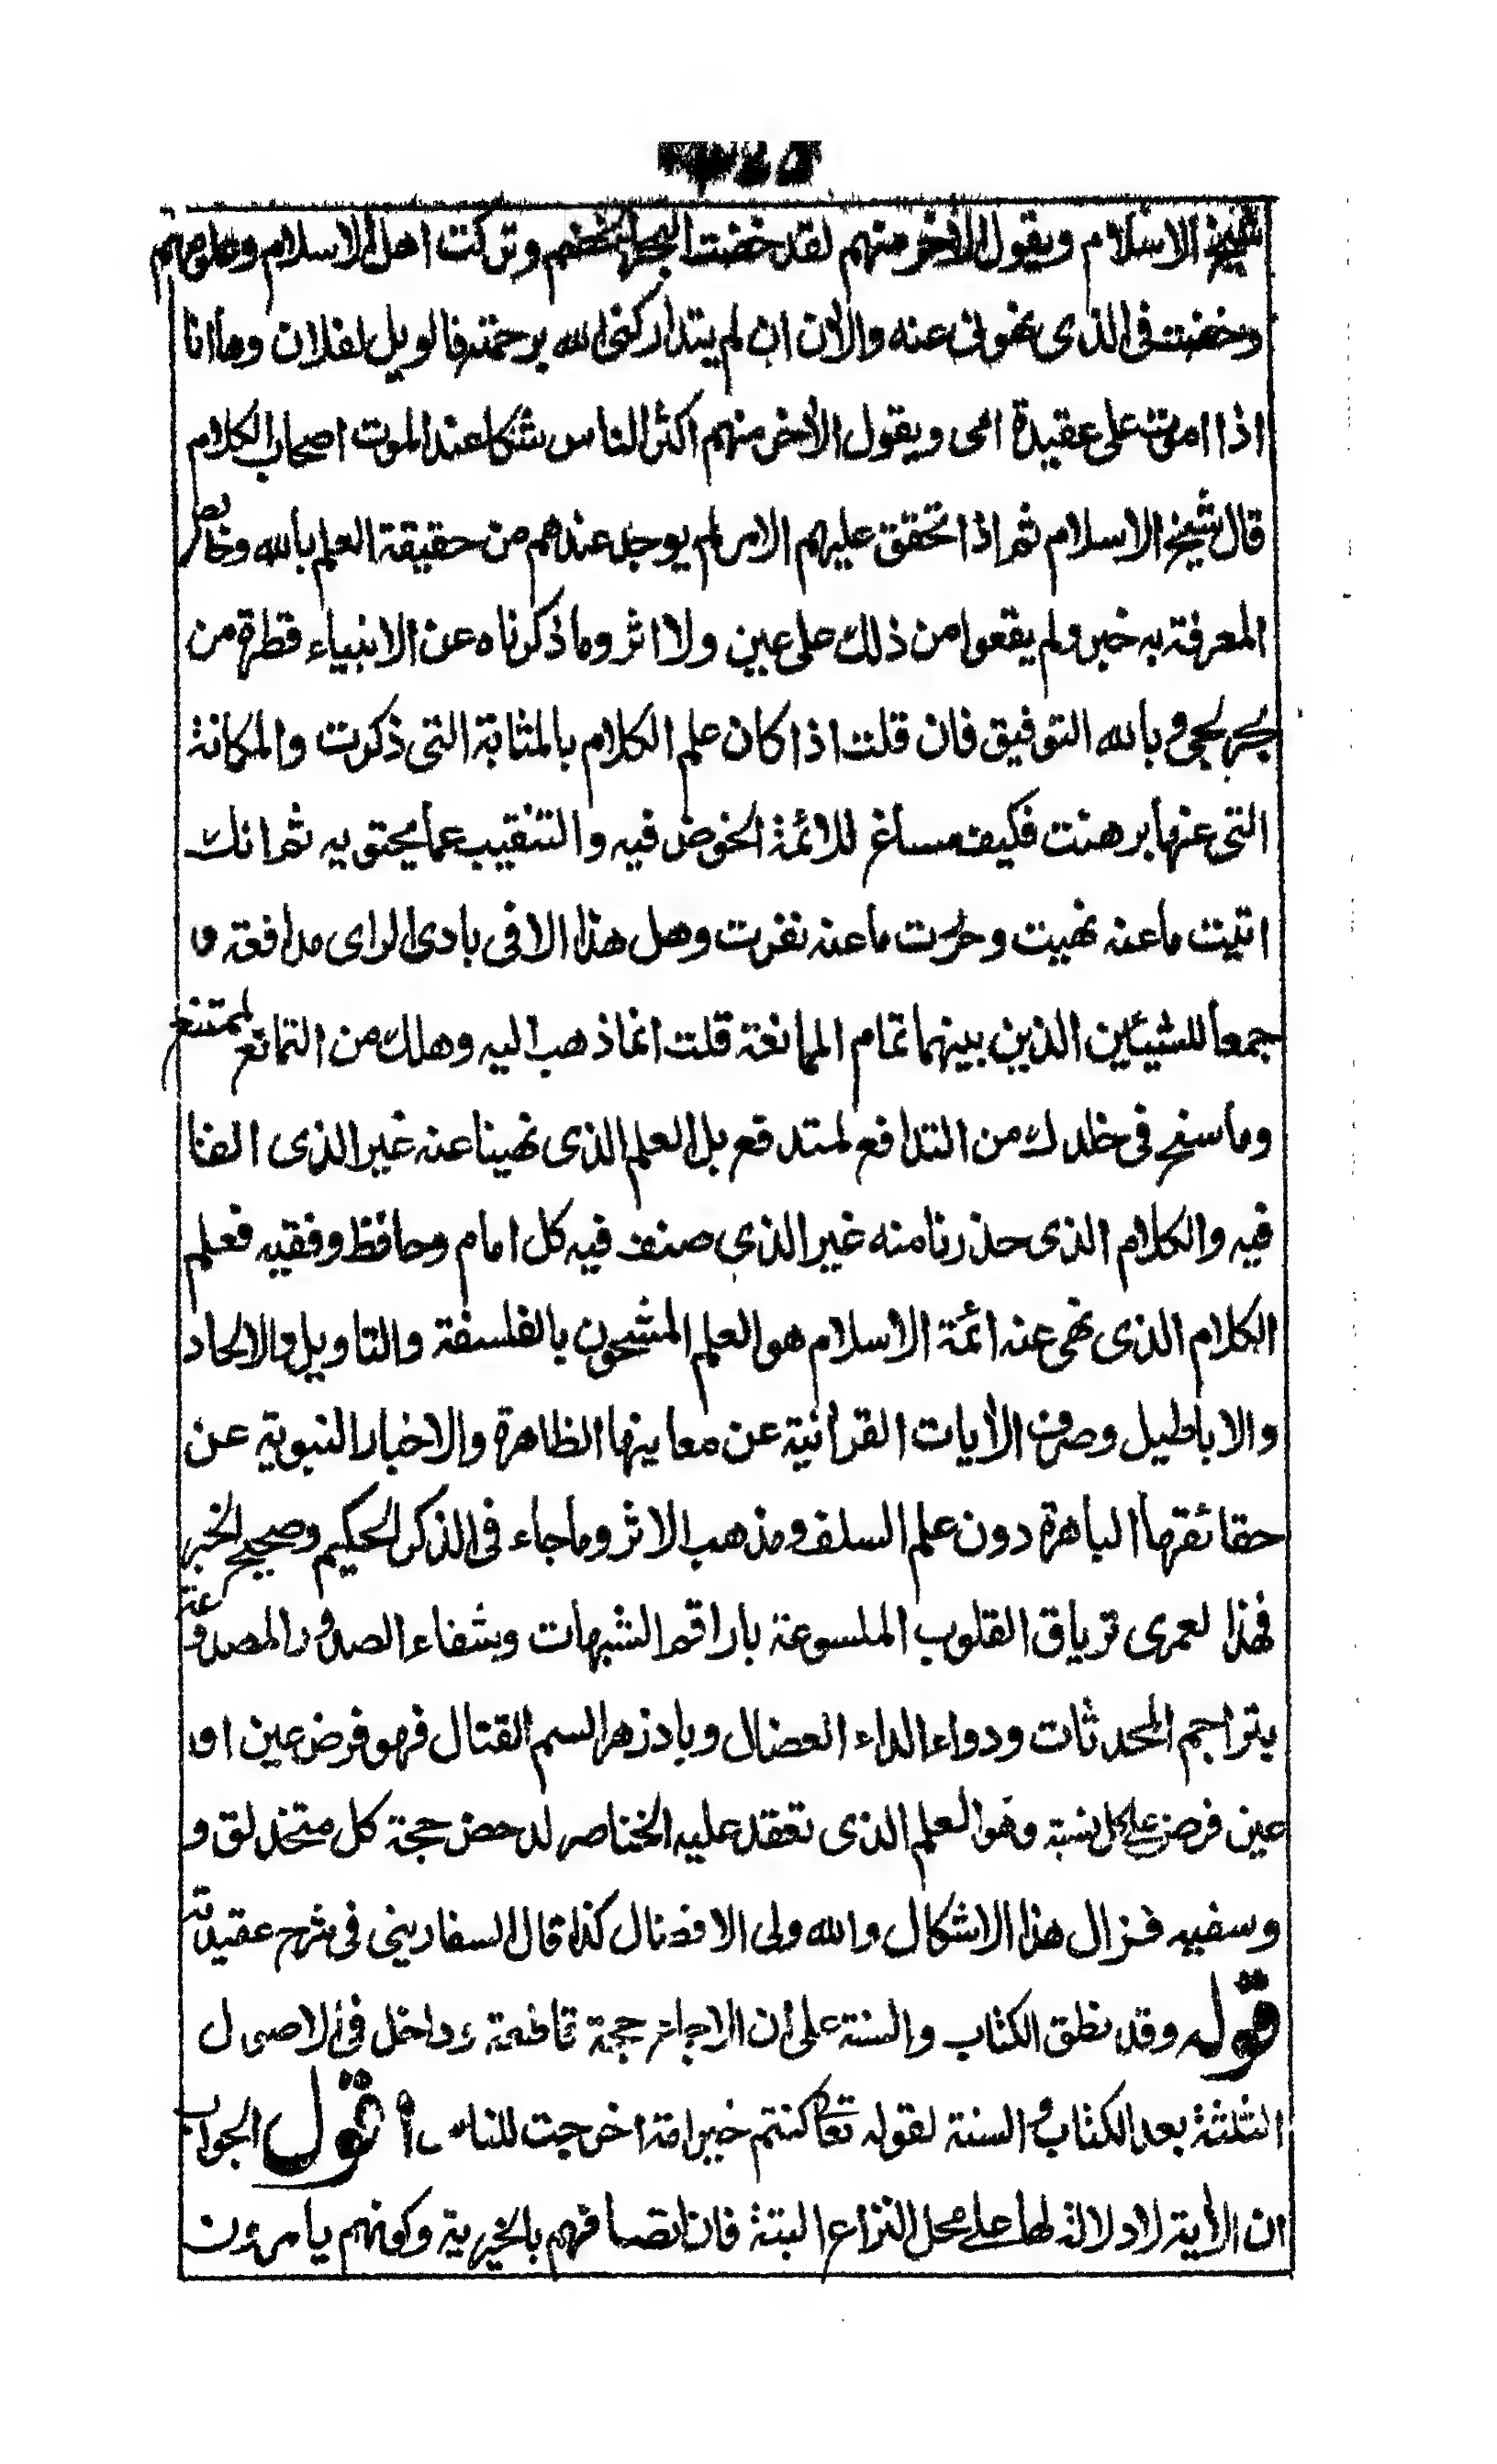 شيخ الاسلام ويقول الآخر منهم لقد خضت البحر الخضم وتركت اهل الاسلام وعلومهم
وخضت فى الذى نهونى عنه والآن ان لم يتداركنى الله برحمته فالويل لفلان وها انا
اذا اموت على عقيدة امى ويقول الآخر منهم اكثر الناس شكا عند الموت اصحاب الكلام
قال شيخ الاسلام ثم اذا تحقق عليهم الامر لم يوجد عندهم من حقيقة العلم بالله وخالص
المعرفة به خبر ولم يقعوا من ذلك على عين ولا اثر وما ذكرناه عن الانبياء قطرة من
بحر لجى وبالله التوفيق فان قلت اذا كان علم الكلام بالمثابة التى ذكرت والمكانة
التى عنها برهنت فكيف مساغ للائمة الخوض فيه والتنقيب عما يحتويه ثم انك
اتيت ما عنه نهيت وحررت ما عنه نفرت وهل هذا الا فى بادى الراى مدافعة و
جمعا للشيئين الذين بينهما تمام الممانعة قلت انما ذهب اليه وهلك من التمانع لممتنع
وما سنح فى خلدك من التدافع لمتدفع بل العلم الذى نهينا عنه غير الذى الفنا
فيه والكلام الذى حذرنا منه غير الذى صنف فيه كل امام وحافظ وفقيه فعلم
الكلام الذى نهى عنه ائمة الاسلام هو العلم المشحون بالفلسفة والتاويل والالحاد
والاباطيل وصرف الآيات القرآنية عن معانيها الظاهرة والاخبار النبوية عن
حقائقها الباهرة دون علم السلف ومذهب الاثر وما جاء فى الذكر الحكيم وصحيح الخبر
فهذا لعمرى ترياق القلوب الملسوعة باراقم الشبهات وشفاء الصدور المصدوعة
بتراجم المحدثات ودواء الداء العضال وبادزهر السم القتال فهو فرض عين او
عين فرض على كل نسبة وهو العلم الذى تعقد عليه الخناصر لدحض حجة كل متحذلق و
وسفيه فزال هذا الاشكال والله ولى الافضال كذا قال السفارينى فى شرح عقيدته
قوله وقد نطق الكتاب والسنة على ان الاجماع حجة قاطعة وداخل فى الاصول
الثلثة بعد الكتاب والسنة لقوله تعا كنتم خير امة اخرجت للناس اقول الجواب
ان الآية لا دلالة لها على محل النزاع البتة فان اتصافهم بالخيرية وكونهم يامرون